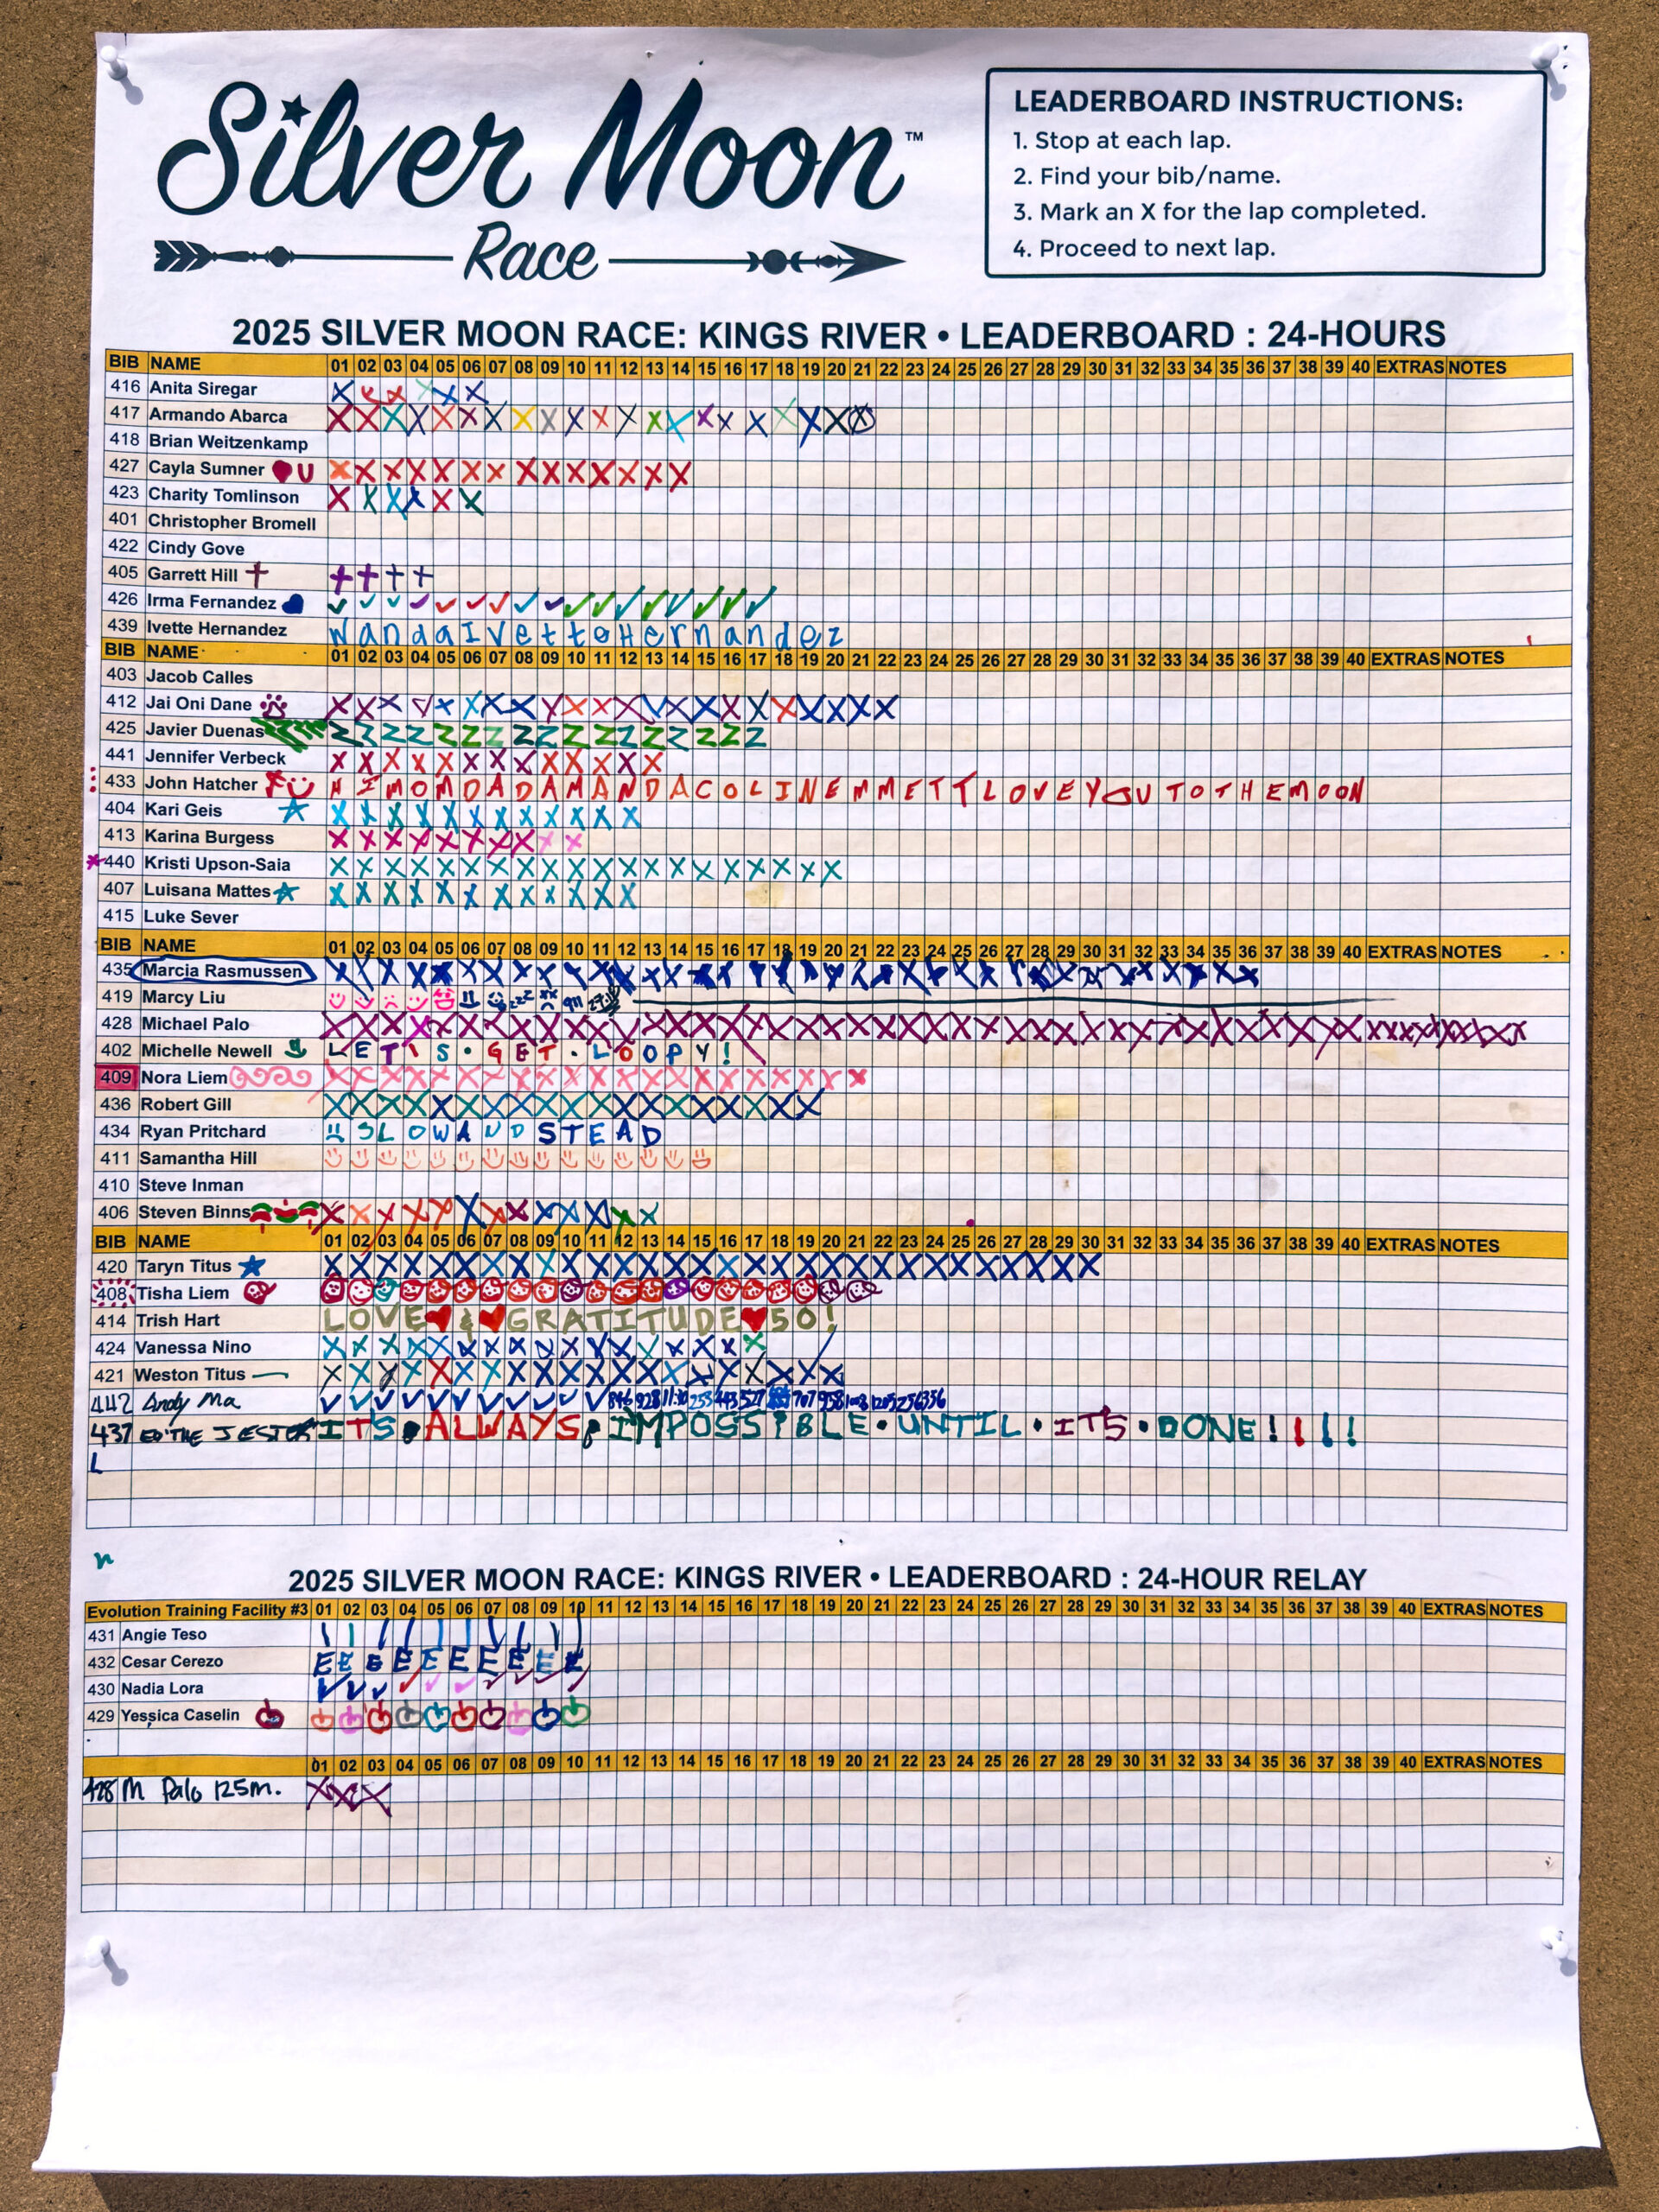 Silver Moon™
Race
LEADERBOARD INSTRUCTIONS:
1. Stop at each lap.
2. Find your bib/name.
3. Mark an X for the lap completed.
4. Proceed to next lap.
2025 SILVER MOON RACE: KINGS RIVER • LEADERBOARD : 24-HOURS
BIB NAME 01 02 03 04 05 06 07 08 09 10 11 12 13 14 15 16 17 18 19 20 21 22 23 24 25 26 27 28 29 30 31 32 33 34 35 36 37 38 39 40 EXTRAS NOTES
416 Anita Siregar X X X X X X
417 Armando Abarca X X X X X X X X X X X X X X X X X X X X X
418 Brian Weitzenkamp
427 Cayla Sumner U X X X X X X X X X X X X X X
423 Charity Tomlinson X X X X X X
401 Christopher Bromell
422 Cindy Gove
405 Garrett Hill
426 Irma Fernandez
439 Ivette Hernandez W a n d a I v e t t e H e r n a n d e z
BIB NAME 01 02 03 04 05 06 07 08 09 10 11 12 13 14 15 16 17 18 19 20 21 22 23 24 25 26 27 28 29 30 31 32 33 34 35 36 37 38 39 40 EXTRAS NOTES
403 Jacob Calles
412 Jai Oni Dane X X X X X X X X X X X X X X X X X X X X X X
425 Javier Duenas Z Z Z Z Z Z Z Z Z Z Z Z Z Z Z Z Z
441 Jennifer Verbeck X X X X X X X X X X X X X
433 John Hatcher H I M O M D A D A M A N D A C O L I N E M M E T T L O V E Y O U T O T H E M O O N
404 Kari Geis X X X X X X X X X X X X
413 Karina Burgess X X X X X X X X X X
440 Kristi Upson-Saia X X X X X X X X X X X X X X X X X X X X
407 Luisana Mattes X X X X X X X X X X X X
415 Luke Sever
BIB NAME 01 02 03 04 05 06 07 08 09 10 11 12 13 14 15 16 17 18 19 20 21 22 23 24 25 26 27 28 29 30 31 32 33 34 35 36 37 38 39 40 EXTRAS NOTES
435 Marcia Rasmussen X X X X X X X X X X X X X X X X X X X X X X X X X X X X X X X X X X X X
419 Marcy Liu zzz 911
428 Michael Palo X X X X X X X X X X X X X X X X X X X X X X X X X X X X X X X X X X X X X X X X
402 Michelle Newell L E T ' S • G E T • L O O P Y !
409 Nora Liem X X X X X X X X X X X X X X X X X X X X X
436 Robert Gill X X X X X X X X X X X X X X X X X X X
434 Ryan Pritchard S L O W A N D S T E A D
411 Samantha Hill
410 Steve Inman
406 Steven Binns X X X X X X X X X X X X X
BIB NAME 01 02 03 04 05 06 07 08 09 10 11 12 13 14 15 16 17 18 19 20 21 22 23 24 25 26 27 28 29 30 31 32 33 34 35 36 37 38 39 40 EXTRAS NOTES
420 Taryn Titus X X X X X X X X X X X X X X X X X X X X X X X X X X X X X X
408 Tisha Liem
414 Trish Hart L O V E & G R A T I T U D E 5 0 !
424 Vanessa Nino X X X X X X X X X X X X X X X X X
421 Weston Titus X X X X X X X X X X X X X X X X X X X X
442 Andy Ma 846 928 11:30 253 443 527 707 958 1205 256 336
437 ED THE JESTER I T S • A L W A Y S • I M P O S S I B L E • U N T I L • I T S • D O N E ! ! ! !
L
n
2025 SILVER MOON RACE: KINGS RIVER • LEADERBOARD : 24-HOUR RELAY
Evolution Training Facility #3 01 02 03 04 05 06 07 08 09 10 11 12 13 14 15 16 17 18 19 20 21 22 23 24 25 26 27 28 29 30 31 32 33 34 35 36 37 38 39 40 EXTRAS NOTES
431 Angie Teso
432 Cesar Cerezo E E E E E E E E E E
430 Nadia Lora
429 Yessica Caselin
01 02 03 04 05 06 07 08 09 10 11 12 13 14 15 16 17 18 19 20 21 22 23 24 25 26 27 28 29 30 31 32 33 34 35 36 37 38 39 40 EXTRAS NOTES
428 M Palo 125m. X X X